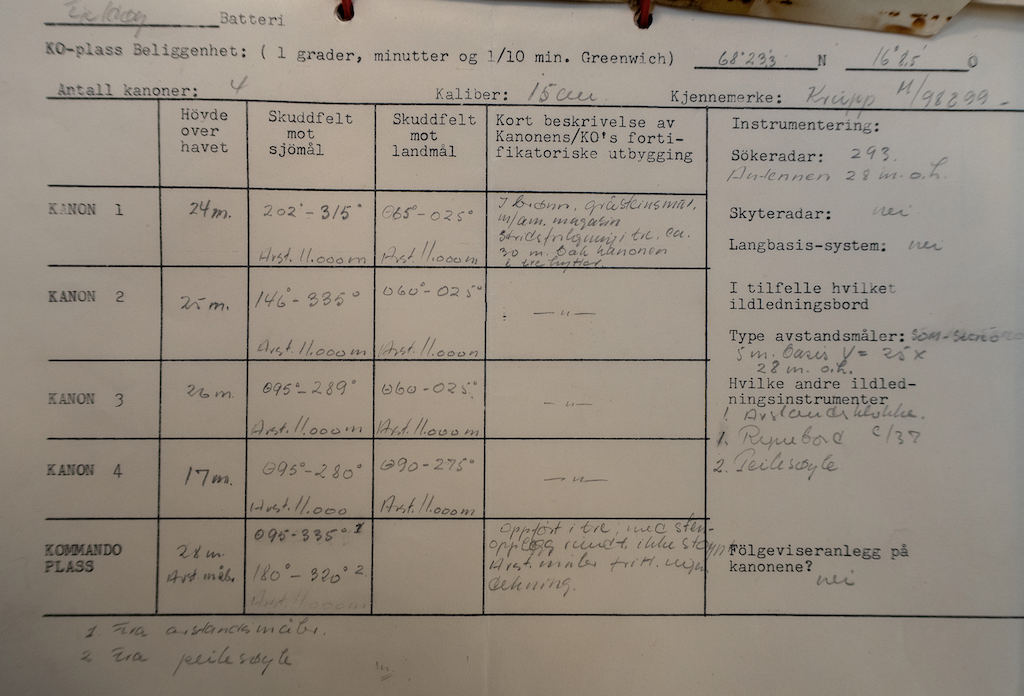 Batteri
KO-plass Beliggenhet: ( 1 grader, minutter og 1/10 min. Greenwich) 68°23,3 N 16°8,5 O
Antall kanoner: 4 Kaliber: 15cm. Kjennemerke: Krupp M/98299
Hövde over havet
Skuddfelt mot sjömål
Skuddfelt mot landmål
Kort beskrivelse av
Kanonens/KO's forti-
fikatoriske utbygging
KANON 1
24m.
202°-315°
Avst. 11.000m
065°-025°
Avst. 11.000m
m/am. magasin
30 m. bak kanonen
KANON 2
25m.
146°-335°
Avst. 11.000m
060°-025°
Avst. 11.000m
— " —
KANON 3
26m.
095°-289°
Avst. 11.000m
060-025°
Avst. 11.000m
— " —
KANON 4
17m.
095°-280°
Avst. 11.000
090-275°
Avst. 11.000m
— " —
KOMMANDO
PLASS
28m.
Avst. målr.
095-335° 1
180°-320° 2.
Avst. 11.000m
Oppført i tre, med sten-
opplegg rundt, ikke
Avst. måler fritt.
dekning.
Instrumentering:
Sökeradar: 293.
Antennen 28 m.o.h.
Skyteradar: nei
Langbasis-system: nei
I tilfelle hvilket
ildledningsbord
Type avstandsmåler:
5 m. basis V = 25 x
28 m. o.h.
Hvilke andre ildled-
ningsinstrumenter
1. Avstandsklokke.
1. Regnebord C/37
2. Peilesøyle
Fölgeviseranlegg på
kanonene?
nei
1 Fra avstandsmåler.
2 Fra peilesøyle